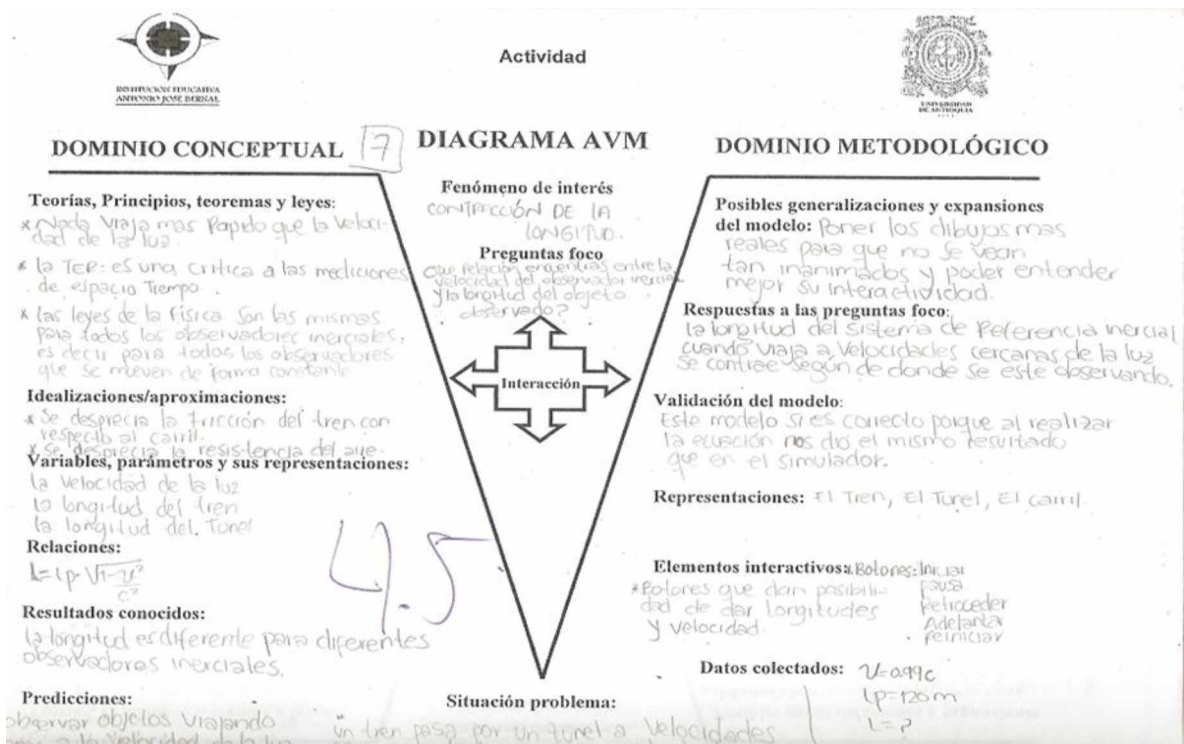 Actividad
INSTITUCIÓN EDUCATIVA
ANTONIO JOSE BERNAL
UNIVERSIDAD
DE ANTIOQUIA
DOMINIO CONCEPTUAL
7
Teorías, Principios, teoremas y leyes:
* Nada viaja mas Rapido que la veloci-
dad de la luz.
* la TER: es una critica a las mediciones
de espacio Tiempo.
* las leyes de la Física son las mismas
para todos los observadores inerciales,
es decir para todos los observadores
que se mueven de forma constante
Idealizaciones/aproximaciones:
* Se desprecia la fricción del tren con
respecto al carril.
* se desprecia la resistencia del aire.
Variables, parámetros y sus representaciones:
la velocidad de la luz
la longitud del tren
la longitud del Tunel
Relaciones:
L=Lp·√1-v²
c²
4.5
Resultados conocidos:
la longitud es diferente para diferentes
observadores inerciales.
Predicciones:
observar objetos viajando
a la velocidad de la luz
DIAGRAMA AVM
Fenómeno de interés
CONTRACCIÓN DE LA
LONGITUD.
Preguntas foco
que relación encuentras entre la
velocidad del observador inercial
y la longitud del objeto
observado?
Interacción
Situación problema:
un tren pasa por un tunel a velocidades
DOMINIO METODOLÓGICO
Posibles generalizaciones y expansiones
del modelo: Poner los dibujos mas
reales para que no se vean
tan inanimados y poder entender
mejor su interactividad.
Respuestas a las preguntas foco:
la longitud del sistema de Referencia inercial
cuando viaja a velocidades cercanas de la luz
se contrae según de donde se este observando.
Validación del modelo:
Este modelo si es correcto porque al realizar
la ecuación nos dio el mismo resultado
que en el simulador.
Representaciones: El Tren, El Tunel, El carril.
Elementos interactivos: * Botones: Iniciar
pausa
Retroceder
Adelanta
Reiniciar
* Botones que dan posibili-
dad de dar longitudes
y velocidad.
Datos colectados: v=0.99c
Lp=120m
L=?